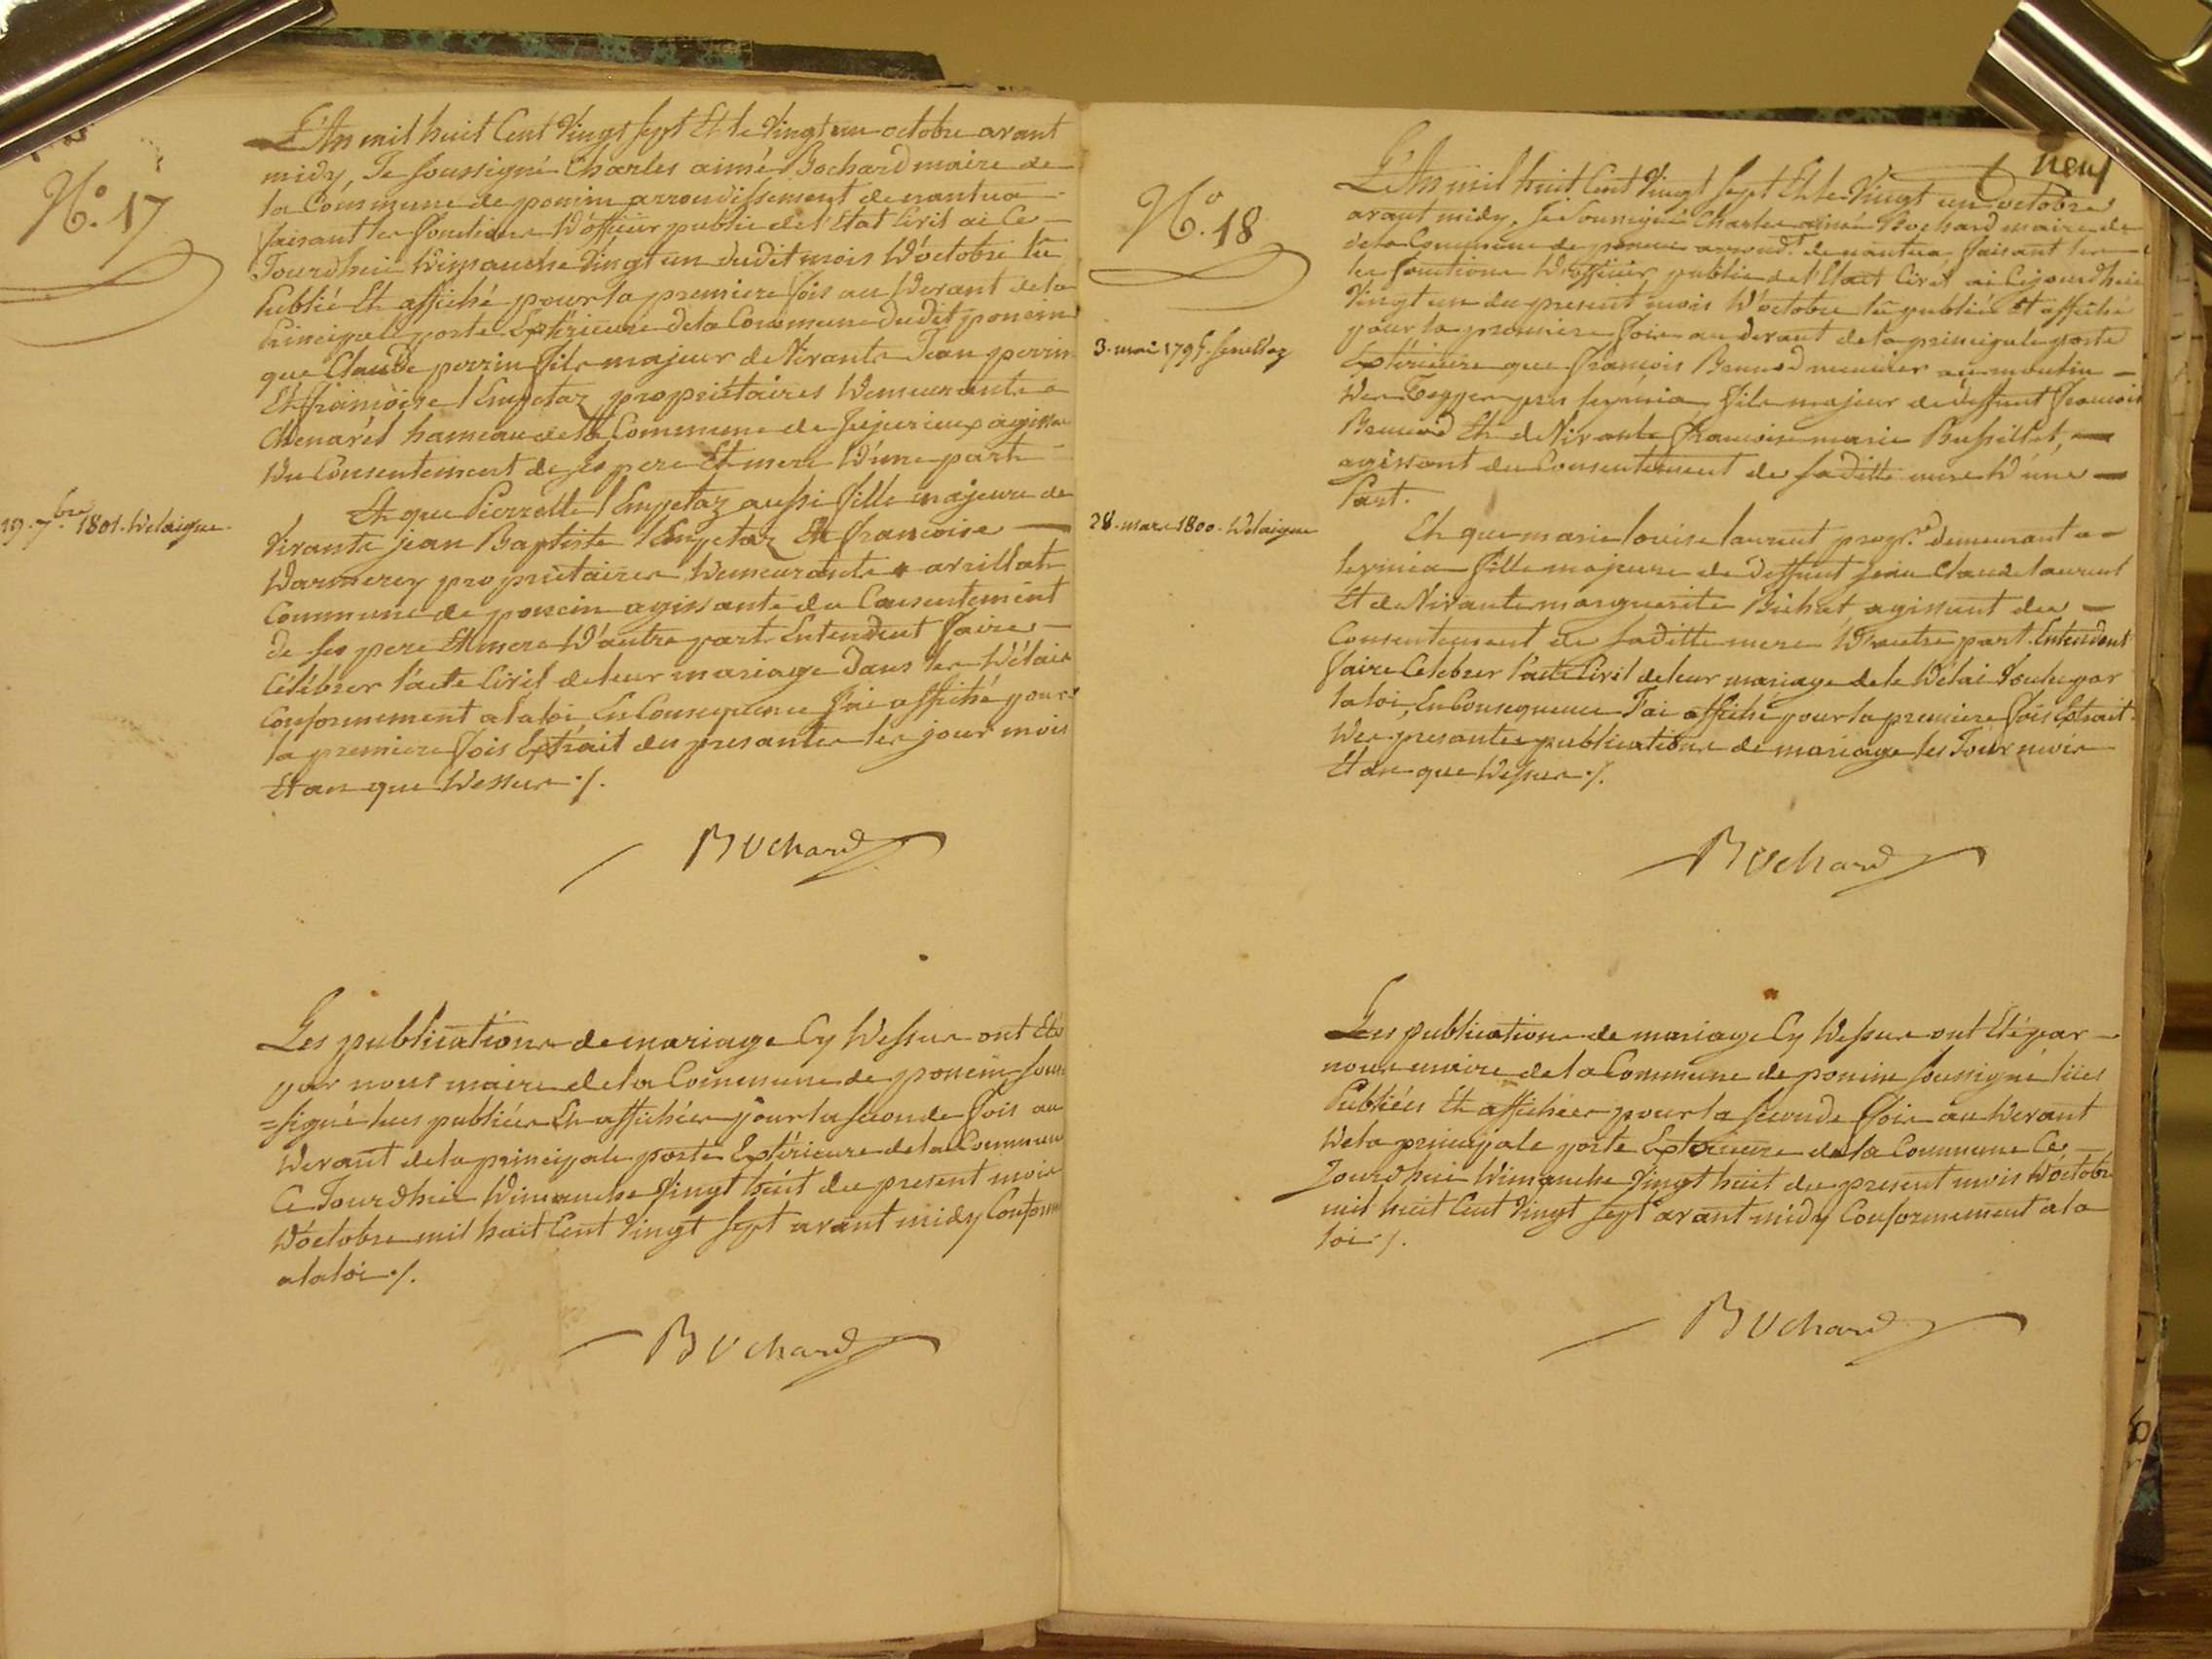 N.° 17
L'An mil huit Cent Vingt Sept Et le Vingt un octobre avant
midy, Je soussigné Charles aimé Bochard maire de
la Commune de poncin arrondissement de nantua
faisant les fonctions d'officier public de l'Etat Civil ai Ce
Jourdhui dimanche Vingt un dudit mois d'octobre lû
Publié Et affiché pour la premiere fois au devant de la
Principale porte Extérieure de la Commune dudit poncin
que Claude perrin fils majeur de Vivants Jean perrin
Et françoise propriétaires demeurants a
Chenavel hameau de la Commune de Jujurieux agissa
du Consentement de Ses pere Et mere d'une part
19. 7.bre 1801. delaigue
Et que Pierrette aussi fille majeure de
Vivants jean Baptiste Et francoise
propriétaires demeurants a arillat
Commune de poncin agissante du Consentement
de ses pere Et mere d'autre part Entendent faire
Célébrer l'acte Civil de leur mariage dans les délais
Conformement a la loi En Consequence J'ai affiché pour
la premiere fois Extrait des presantes les jour mois
Et an que dessus ./.
Bochard
Les publications de mariage Cy dessus ont Eté
par nous maire de la Commune de poncin sous
=signé lues publiées Et affichées pour la seconde fois au
devant de la principale porte Extérieure de la Commune
Ce Jourdhui dimanche Vingt huit du present mois
d'octobre mil huit Cent Vingt Sept avant midy Conform
a la loi ./.
Bochard
neuf
N.° 18
L'An mil huit Cent Vingt Sept Et le Vingt un octobre
avant midy, Je Soussigné Charles aimé Bochard maire de
de la Commune de poncin arrond.t de nantua faisant les
les fonctions d'officier public de l'Etat Civil ai Cejourdhui
Vingt un du present mois d'octobre lû publié Et affiché
pour la premiere fois au devant de la principale porte
3. mai 1795.
Extérieure que francois meunier au moulin
des pres leymia fils majeur de deffunt francois
Et de Vivante francoise marie Bussillet,
agissant du Consentement de saditte mere d'une
Part.
28. mars 1800. delaigue
Et que marie louise laurent propr.re demeurant a
leymia fille majeure de deffunt jean Claude laurent
Et de Vivante marguerite Bichat agissant du
Consentement de saditte mere d'autre part. Entendent
faire Celebrer l'acte Civil de leur mariage de le délai Voulu par
la loi, En Consequence J'ai affiché pour la premiere fois Extrait
des presantes publications de mariage les Jour mois
Et an que dessus ./.
Bochard
Les publications de mariage Cy dessus ont Eté par
nous maire de la Commune de poncin soussigné lües
Publiées Et affichées pour la seconde fois au devant
de la principale porte Exterieure de la Commune Ce
Jourdhui dimanche Vingt huit du present mois d'octobre
mil huit Cent Vingt Sept avant midy Conformement a la
loi ./.
Bochard